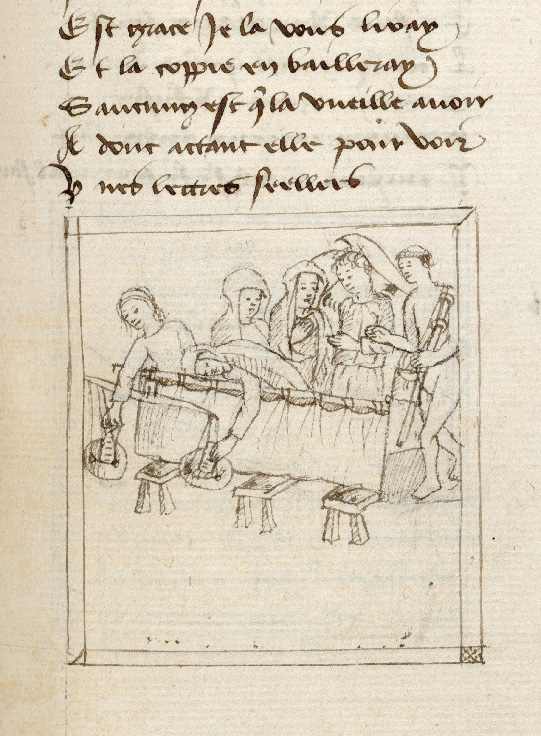 Est grace Je la vous livray
Et la coppie en bailleray
Saucung est q̃ la vueille avoir
A donc attant elle pour voir
Unes lectres seellees